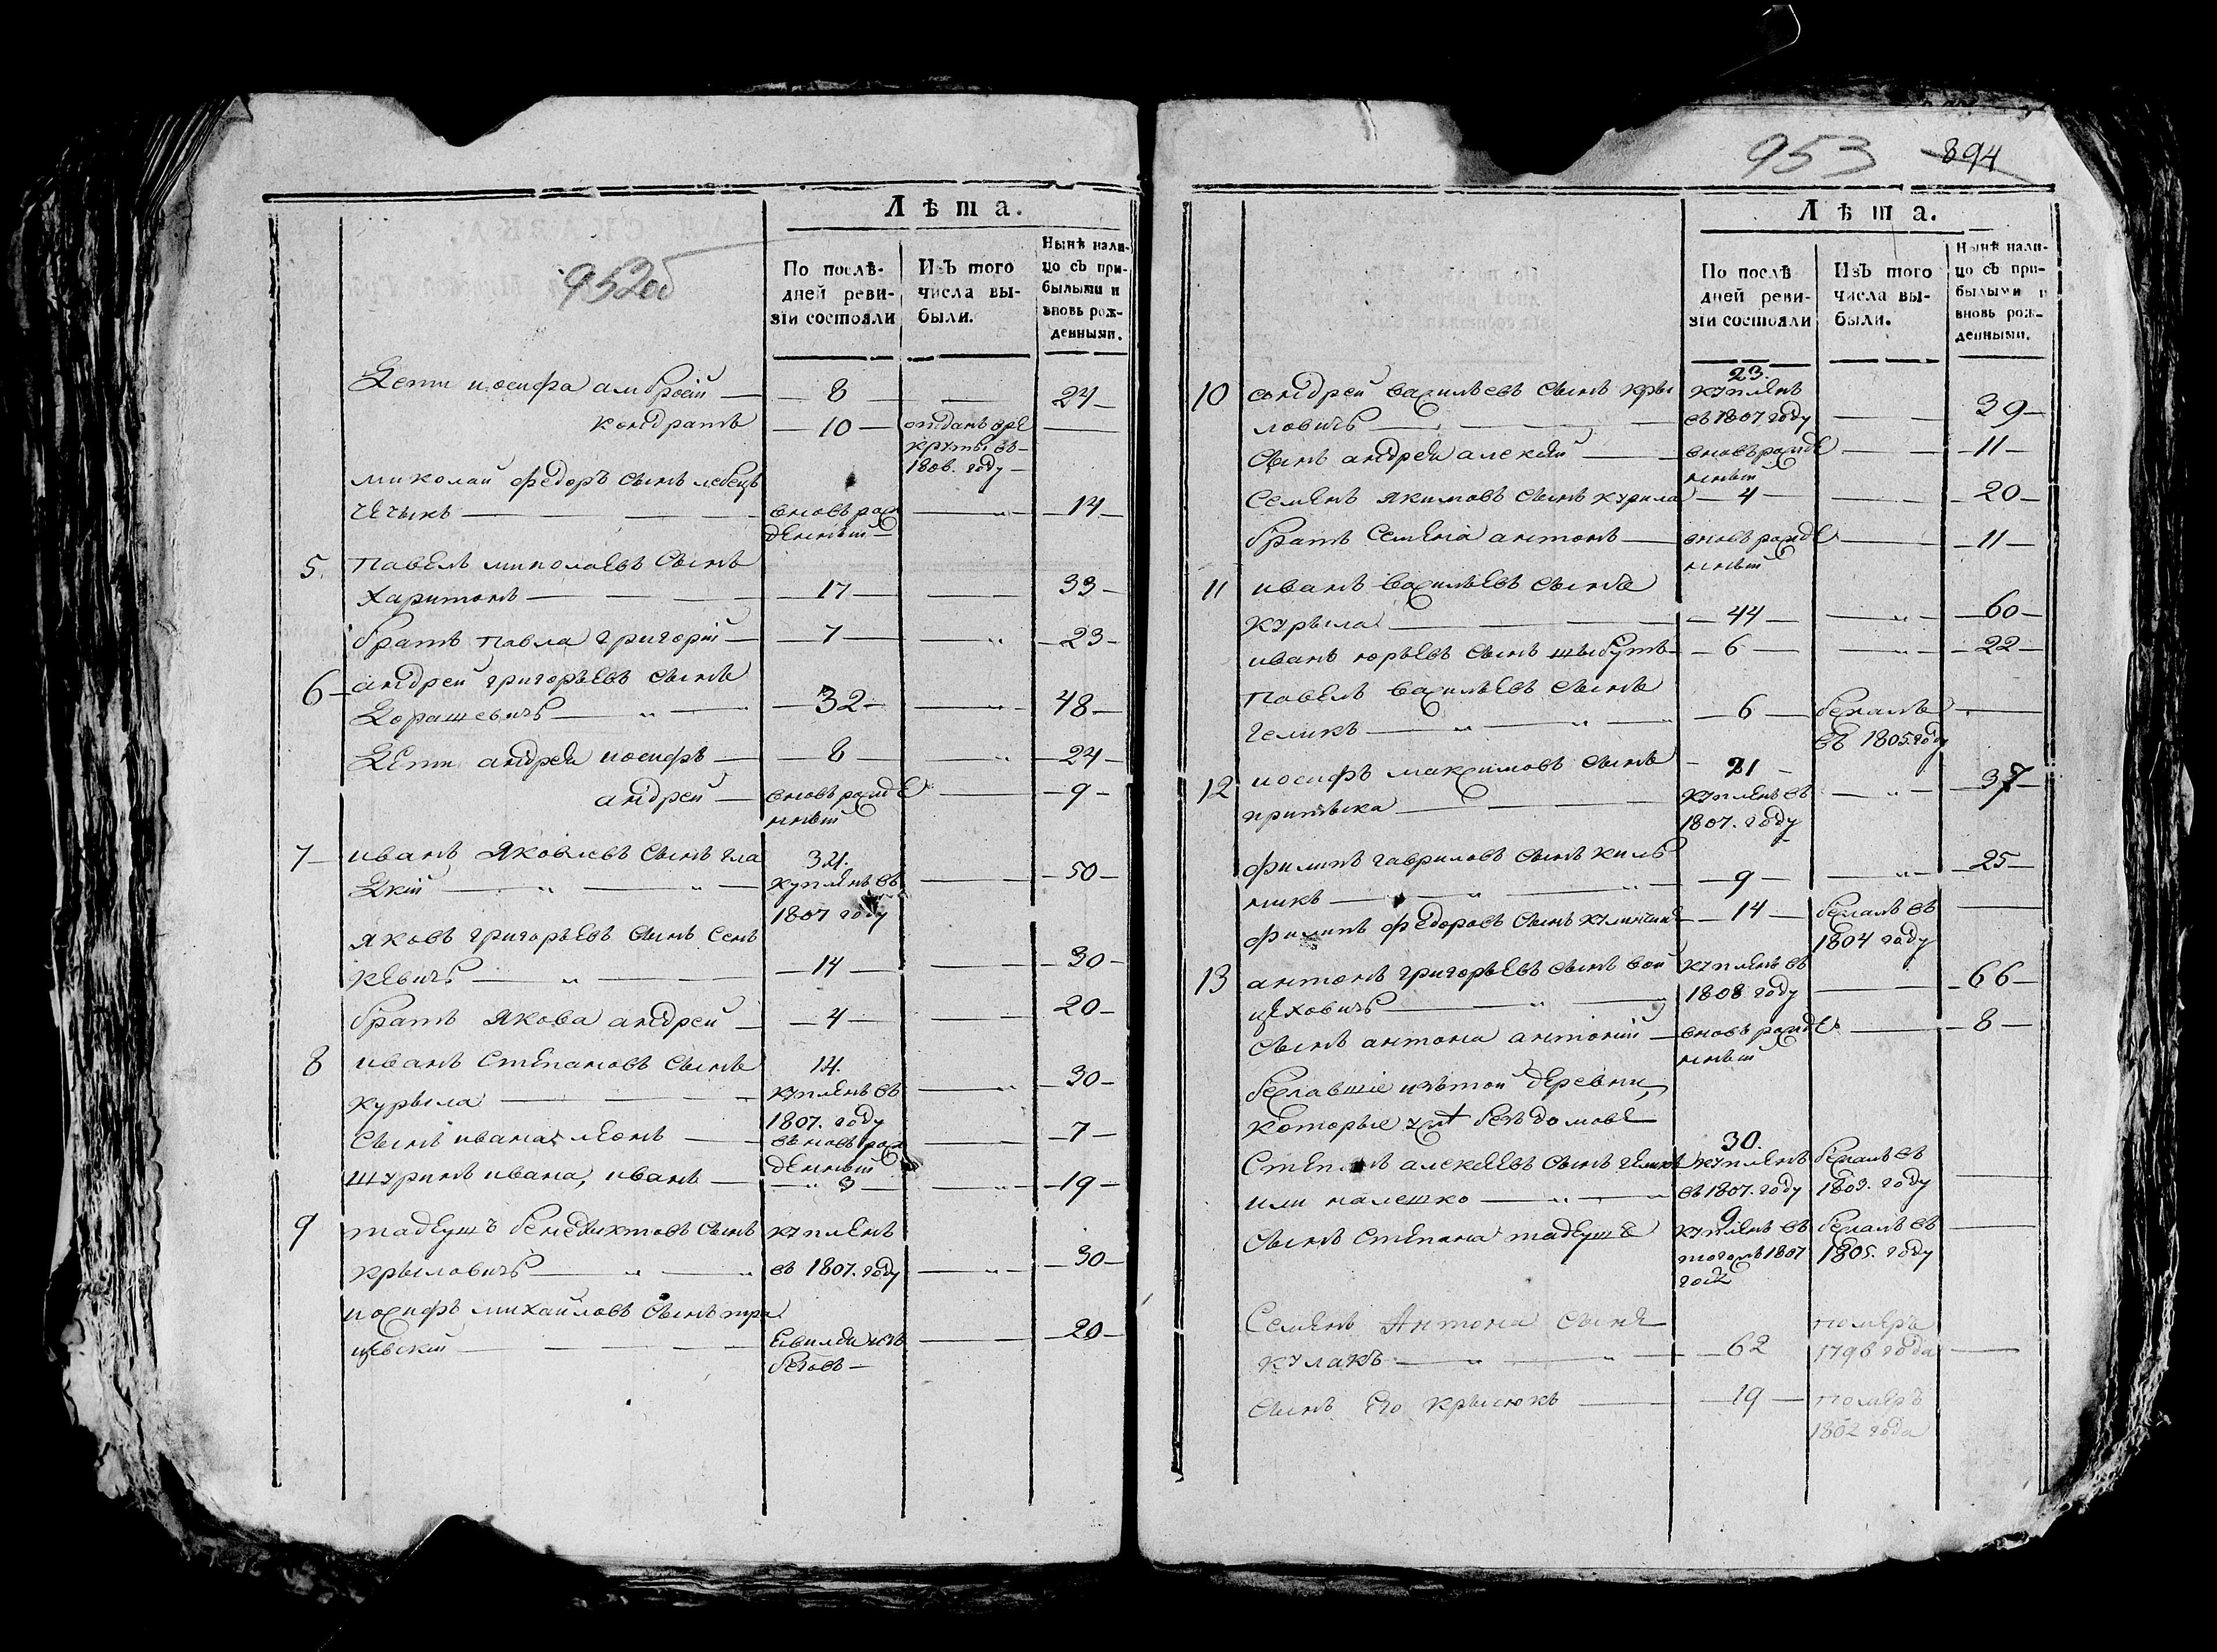 952об
Лѣта.
По послѣ-
дней реви-
зіи состояли
Изъ того
числа вы-
были.
Нынѣ нали-
цо съ при-
былыми и
вновь рож-
денными.
Дети иосифа амброжій — 8 — 24
кондратъ — 10 — отданъ вре
круты въ
1806. году
миколай федоръ сынъ лебецъ
чечыкъ — вновь рож — 14
денный
5. павелъ миколаевъ сынъ
Харитонъ — 17 — 33
братъ павла григорій — 7 — 23
6 андрей григорьевъ сынъ
Дорашевичъ — 32 — 48
Дети андрея иосифъ — 8 — 24
андрей — вновь рожде — 9
нный
7 иванъ Яковлевъ сынъ гла 321.
дкій — купленъ въ — 50
1807 году
Яковъ григорьевъ сынъ сенъ
кевичъ — 14 — 30
братъ Якова андрей — 4 — 20
8 иванъ Степановъ сынъ 14.
курыла — купленъ въ — 30
1807. году
Сынъ ивана, леонъ — вновь рож — 7
денный
шуринъ ивана, иванъ — 3 — 19
9 тадеушъ бенедиктовъ сынъ купленъ
крыловичъ — въ 1807. году — 30
иосифъ михайловъ сынъ тра
цевскій — 20
беговъ
953 894
Лѣта.
По послѣ
дней реви-
зіи состояли
Изъ того
числа вы-
были.
Нынѣ нали-
цо съ при-
былыми и
вновь рож-
денными.
23.
10 андрей васильевъ сынъ кры купленъ
ловичъ — въ 1807 году — 39
Сынъ андрея алексѣй — вновь рожде — 11
нный
Семенъ якимовъ сынъ курила — 4 — 20
братъ Семена антонъ — вновь рожде — 11
нный
11 иванъ васильевъ сынъ
курыла — 44 — 60
иванъ юрьевъ сынъ шыбутъ — 6 — 22
павелъ васильевъ сынъ
геликъ — 6 — бежалъ
въ 1805. году
12 иосифъ максимовъ сынъ 21
притыка — купленъ въ — 37
1807. году
филипъ гавриловъ сынъ киль
никъ — 9 — 25
филипъ федоровъ сынъ — 14 — бежалъ въ
1804 году
13 антонъ григорьевъ сынъ вой купленъ въ
цеховичъ — 1808 году — 66
Сынъ антона антоній — вновь рожде — 8
нный
бежавшіе изътой деревни,
которые безъ домовъ
30.
Степанъ алексеевъ сынъ геликъ купленъ бежалъ въ
или налешко — въ 1807. году 1803. году
9
Сынъ Степана тадеушъ купленъ въ бежалъ въ
томъ 1807 1805. году
году
Семенъ Антона сынъ померъ
кулакъ — 62 1796 года
Сынъ его крысюкъ — 19 — померъ
1802 года